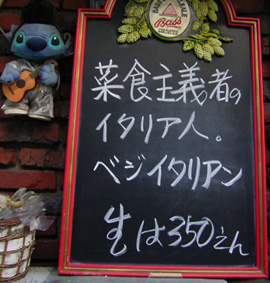 Bass
菜食主義者の
イタリア人。
ベジイタリアン
生は350えん